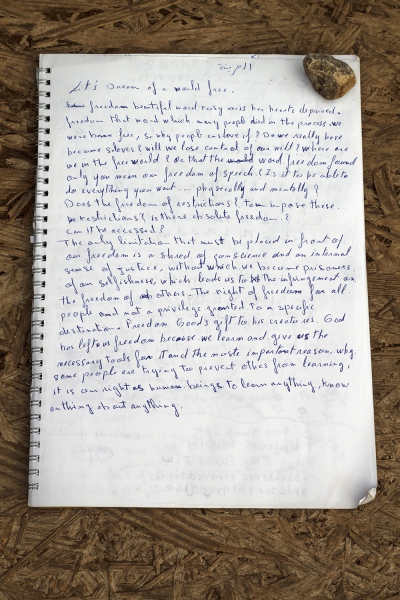 الحرية
Let's Dream of a world free.
freedom beautiful word easy miss her hearts deprived.
freedom that word which many people died in the process we
were born free, so why people enslave if? Do we really have
become slaves? will we lose control of our will? where are
we in the free world? Or that the word freedom found
only you mean our freedom of speech? Is it to be able to
do everything you want... physically and mentally?
Does the freedom of restrictions? To impose these
restrictions? is there absolute freedom.?
Can it be accessed?
The only limitation that must be placed in front of
our freedom is a shred of conscience and an internal
sense of justice, without which we become prisoners
of our selfishness, which leads us to the infringement on
the freedom of others. The right of freedom for all
people and not a privilege granted to a specific
destination. Freedom Good's gift to his creatures. God
has left us freedom because we learn and give us the
necessary tools for it and the moste important reason. why
some people are trying to prevent others from learning,
it is our right as human beings to learn anything, know
anthing about anything.